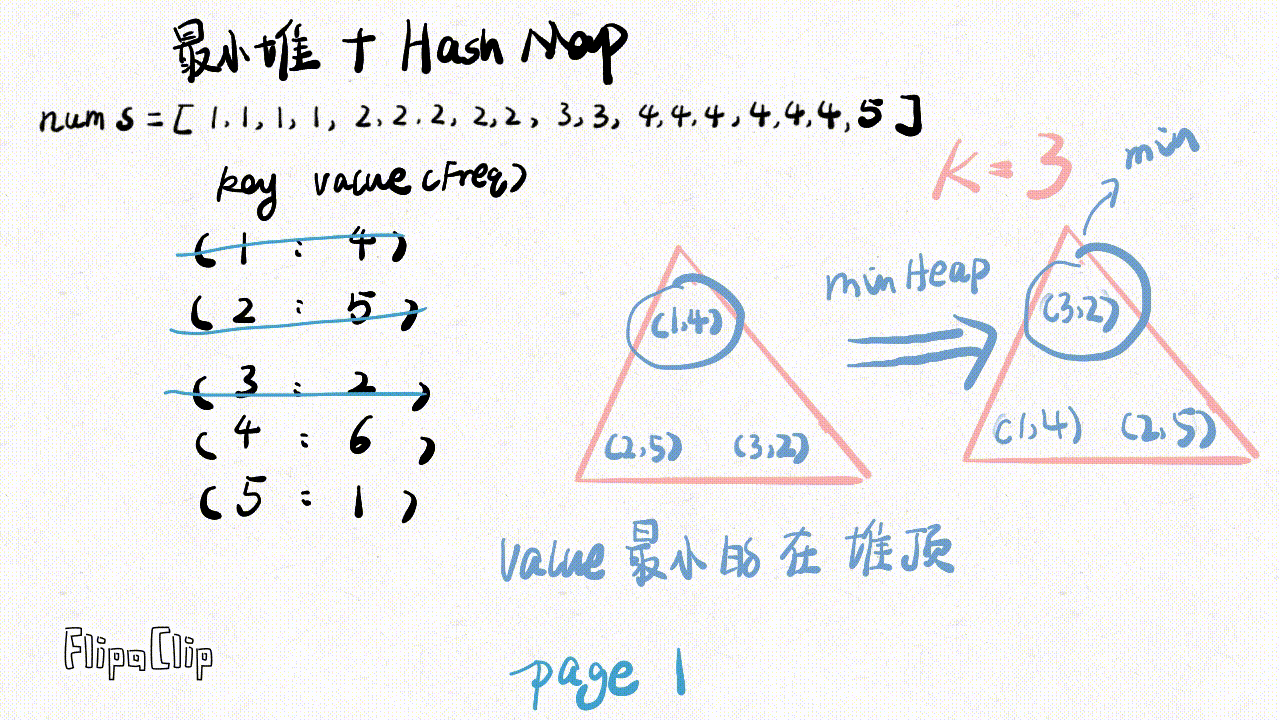 最小堆 + Hash Map
nums = [ 1, 1, 1, 1, 2, 2, 2, 2, 2, 3, 3, 4, 4, 4, 4, 4, 4, 5 ]
K = 3
min
key value (Freq)
( 1 : 4 )
( 2 : 5 )
( 3 : 2 )
( 4 : 6 )
( 5 : 1 )
(1,4)
(2,5) (3,2)
minHeap
(3,2)
(1,4) (2,5)
value 最小的在堆顶
FlipaClip
page 1